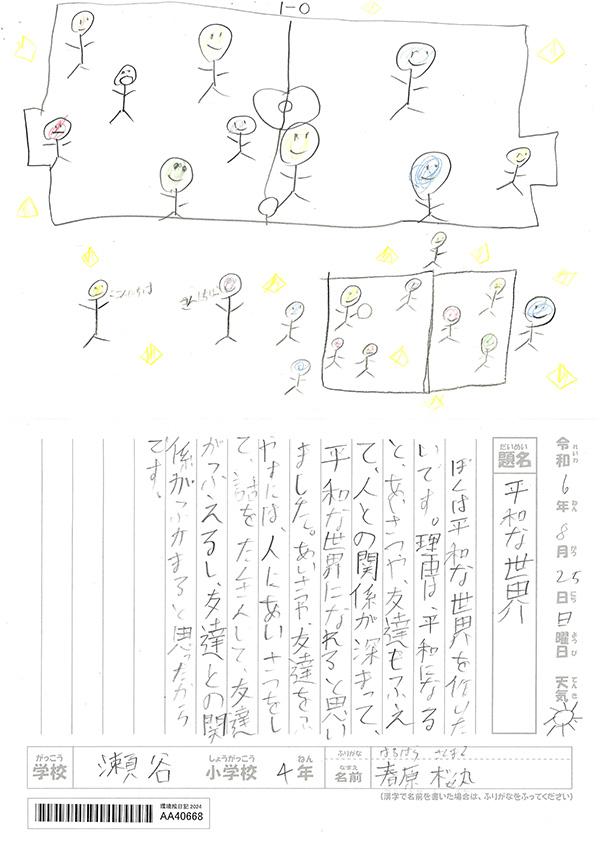 1-0
こんにちは
こんにちは
令和6年8月25日日曜日 天気
れいわ ねん がつ にち ようび てんき
だいめい
題名 平和な世界
ぼくは平和な世界を作りた
いです。理由は、平和になる
と、あいさつや、友達もふえ
て、人との関係が深まって、
平和な世界になれると思い
ました。あいさつや、友達をふ
やすには、人にあいさつをし
て、話をたくさんして、友達
がふえるし、友達との関
係がふかまると思ったから
です。
がっこう しょうがっこう ねん ふりがな
学校 瀬谷 小学校 4年
なまえ
名前 春原
(漢字で名前を書いた場合は、ふりがなをふってください)
環境絵日記 2024
AA40668